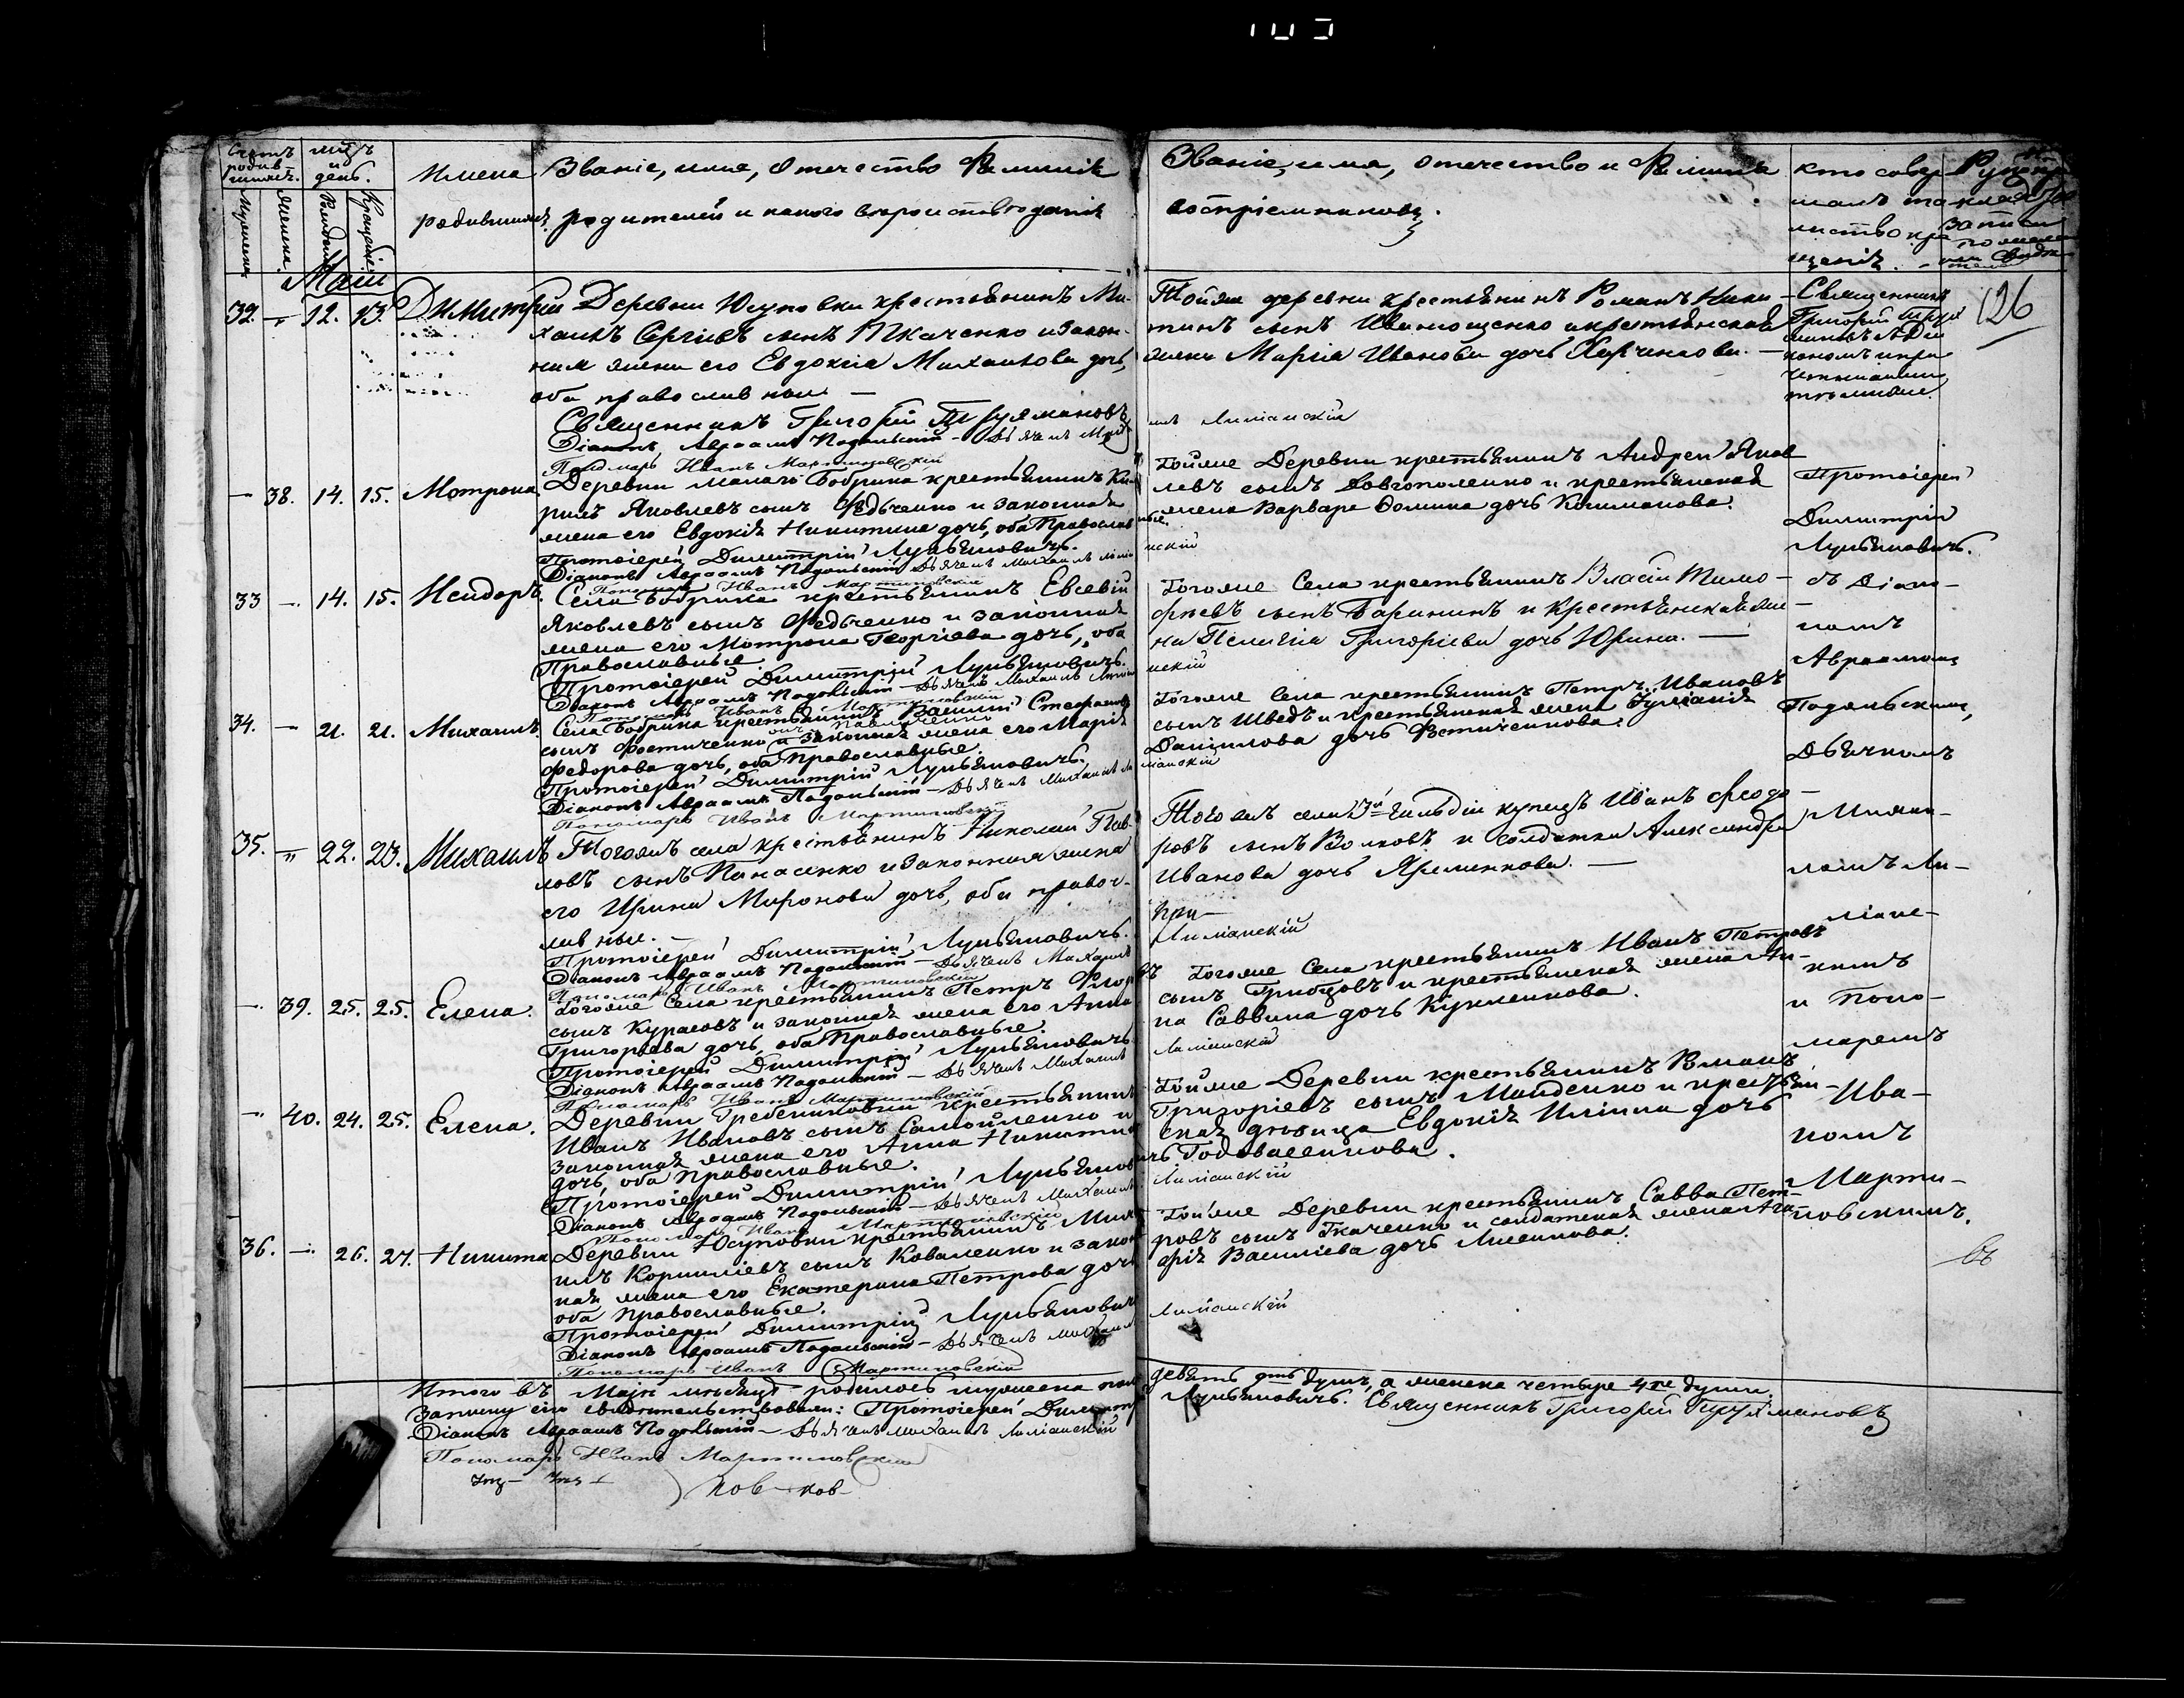 Счетъ родив-
шихся.
Мѣц.
и
день.
Мужеска
Женска.
Рожденія
Крещенія
Имена
родившихся.
Званіе, имя, отечество Фамилія
родителей и какого вѣроисповѣданія
Званіе, имя, отечество и Фамилія
воспріемниковъ.
Кто совер-
шалъ таин
ство кре
щенія.
Маій
32. — 12. 13. Димитрій
Деревни Юсуповки крестьянинъ Ми-
хаилъ Сергіевъ сынъ Ткаченко и закон-
ная жена его Евдокія Михаилова дочь,
оба православные —
Священникъ Григорій
Діаконъ Авраамъ Подольскій — Дьячекъ
Пономарь Иванъ Мартиновскій
Тойже деревни крестьянинъ Романъ Ники-
тинъ сынъ Иванющенко и крестьянская
жена Марія Иванова дочь Харченкова. —
Лиманскій
Священникъ
Григорій
126
— 38. 14. 15. Мотрона
Деревни малаго Бобрика крестьянинъ Ки-
рилъ Яковлевъ сынъ Федченко и законная
жена его Евдокія Никитина дочь, оба Православ
ные.
Протоіерей Димитрій Лукьяновичъ.
Діаконъ Авраамъ Подольскій Дьячекъ Михаилъ Лима
нскій
Пономарь Иванъ Мартиновскій
Тойже Деревни крестьянинъ Андрей Яков
левъ сынъ Довгополенко и крестьянская
жена Варвара Фомина дочь
Протоіерей
Димитрій
Лукьяновичъ.
33 — 14. 15. Исидоръ.
Села Бобрика крестьянинъ Евсевій
Яковлевъ сынъ Федченко и законная
жена его Мотрона Георгіева дочь, оба
Православные.
Протоіерей Димитрій Лукьяновичъ.
Діаконъ Авраамъ Подольскій — Дьячекъ Михаилъ Лима
нскій
Пономарь Иванъ Мартиновскій
Тогоже Села крестьянинъ Власій Тимо-
феевъ сынъ Барининъ и Крестьянская же-
на Пелагія Григоріева дочь Юрина. —
съ Діако-
номъ
Авраамомъ
34. — 21. 21. Михаилъ
Села Бобрика крестьянинъ Стефановъ
сынъ Фостиченко и законная жена его Марія
Федорова дочь, оба Православные.
Протоіерей Димитрій Лукьяновичъ.
Діаконъ Авраамъ Подольскій — Дьячекъ Михаилъ Ли
манскій
Пономарь Иванъ Мартиновскій
Тогоже Села крестьянинъ Петръ Ивановъ
сынъ Шведъ и крестьянская жена Іуліанія
Даніилова дочь Фостиченкова.
Подольскимъ,
Дьячкомъ
35. — 22. 23. Михаилъ
Тогожъ села крестьянинъ Николай Пав-
ловъ сынъ Панасенко и законная жена
его Ирина Миронова дочь, оба правос-
лавные. —
Протоіерей Димитрій Лукьяновичъ.
Діаконъ Авраамъ Подольскій — Дьячекъ Михаилъ
Лиманскій
Пономарь Иванъ Мартиновскій
Тогожъ села 3й гильдіи купецъ Иванъ Феодо-
ровъ сынъ Волковъ и солдатка Александра
Иванова дочь Яременкова. —
Михаи-
ломъ Ли-
— 39. 25. 25. Елена.
Тогоже Села крестьянинъ Петръ
сынъ Курасовъ и законная жена его Анна
Григорьева дочь, оба Православные.
Протоіерей Димитрій Лукьяновичъ
Діаконъ Авраамъ Подольскій — Дьячекъ Михаилъ
Лиманскій
Пономарь Иванъ Мартиновскій
Тогоже Села крестьянинъ Иванъ Петровъ
сынъ Грибцовъ и крестьянская жена Ан-
на Саввина дочь
манс-
кимъ
и Поно-
маремъ
— 40. 24. 25. Елена.
Деревни Гребениковки крестьянинъ
Иванъ Ивановъ сынъ Самойленко и
законная жена его Анна Никитина
дочь, оба Православные.
Протоіерей Димитрій Лукьянов
ичъ
Діаконъ Авраамъ Подольскій — Дьячекъ Михаилъ
Лиманскій
Пономарь Иванъ Мартиновскій
Тойже Деревни крестьянинъ Романъ
Григоріевъ сынъ Майденко и крестьян-
ская дѣвица Евдокія Иліина дочь
Ива-
номъ
36. — 26. 27. Никита
Деревни Юсуповки крестьянинъ
Корниліевъ сынъ Коваленко и закон
ная жена его Екатерина Петрова дочь
оба Православные.
Протоіерей Димитрій Лукьянович
Діаконъ Авраамъ Подольскій — Дьячекъ Михаилъ
Лиманскій
Пономарь Иванъ Мартиновскій
Тойже Деревни крестьянинъ Савва Пет-
ровъ сынъ Ткаченко и солдатская жена Ага-
фія Василіева дочь
Марти-
новскимъ.
Итого въ Маіи мѣсяцѣ родилось мужеска пола
девять душъ, а женска четыре 4ре души.
Запись сію свидѣтельствовали: Протоіерей Димитр
Лукьяновичъ. Священникъ Григорій
Діаконъ Авраамъ Подольскій — Дьячекъ Михаилъ Лиманскій
Пономарь Иванъ Мартиновскій